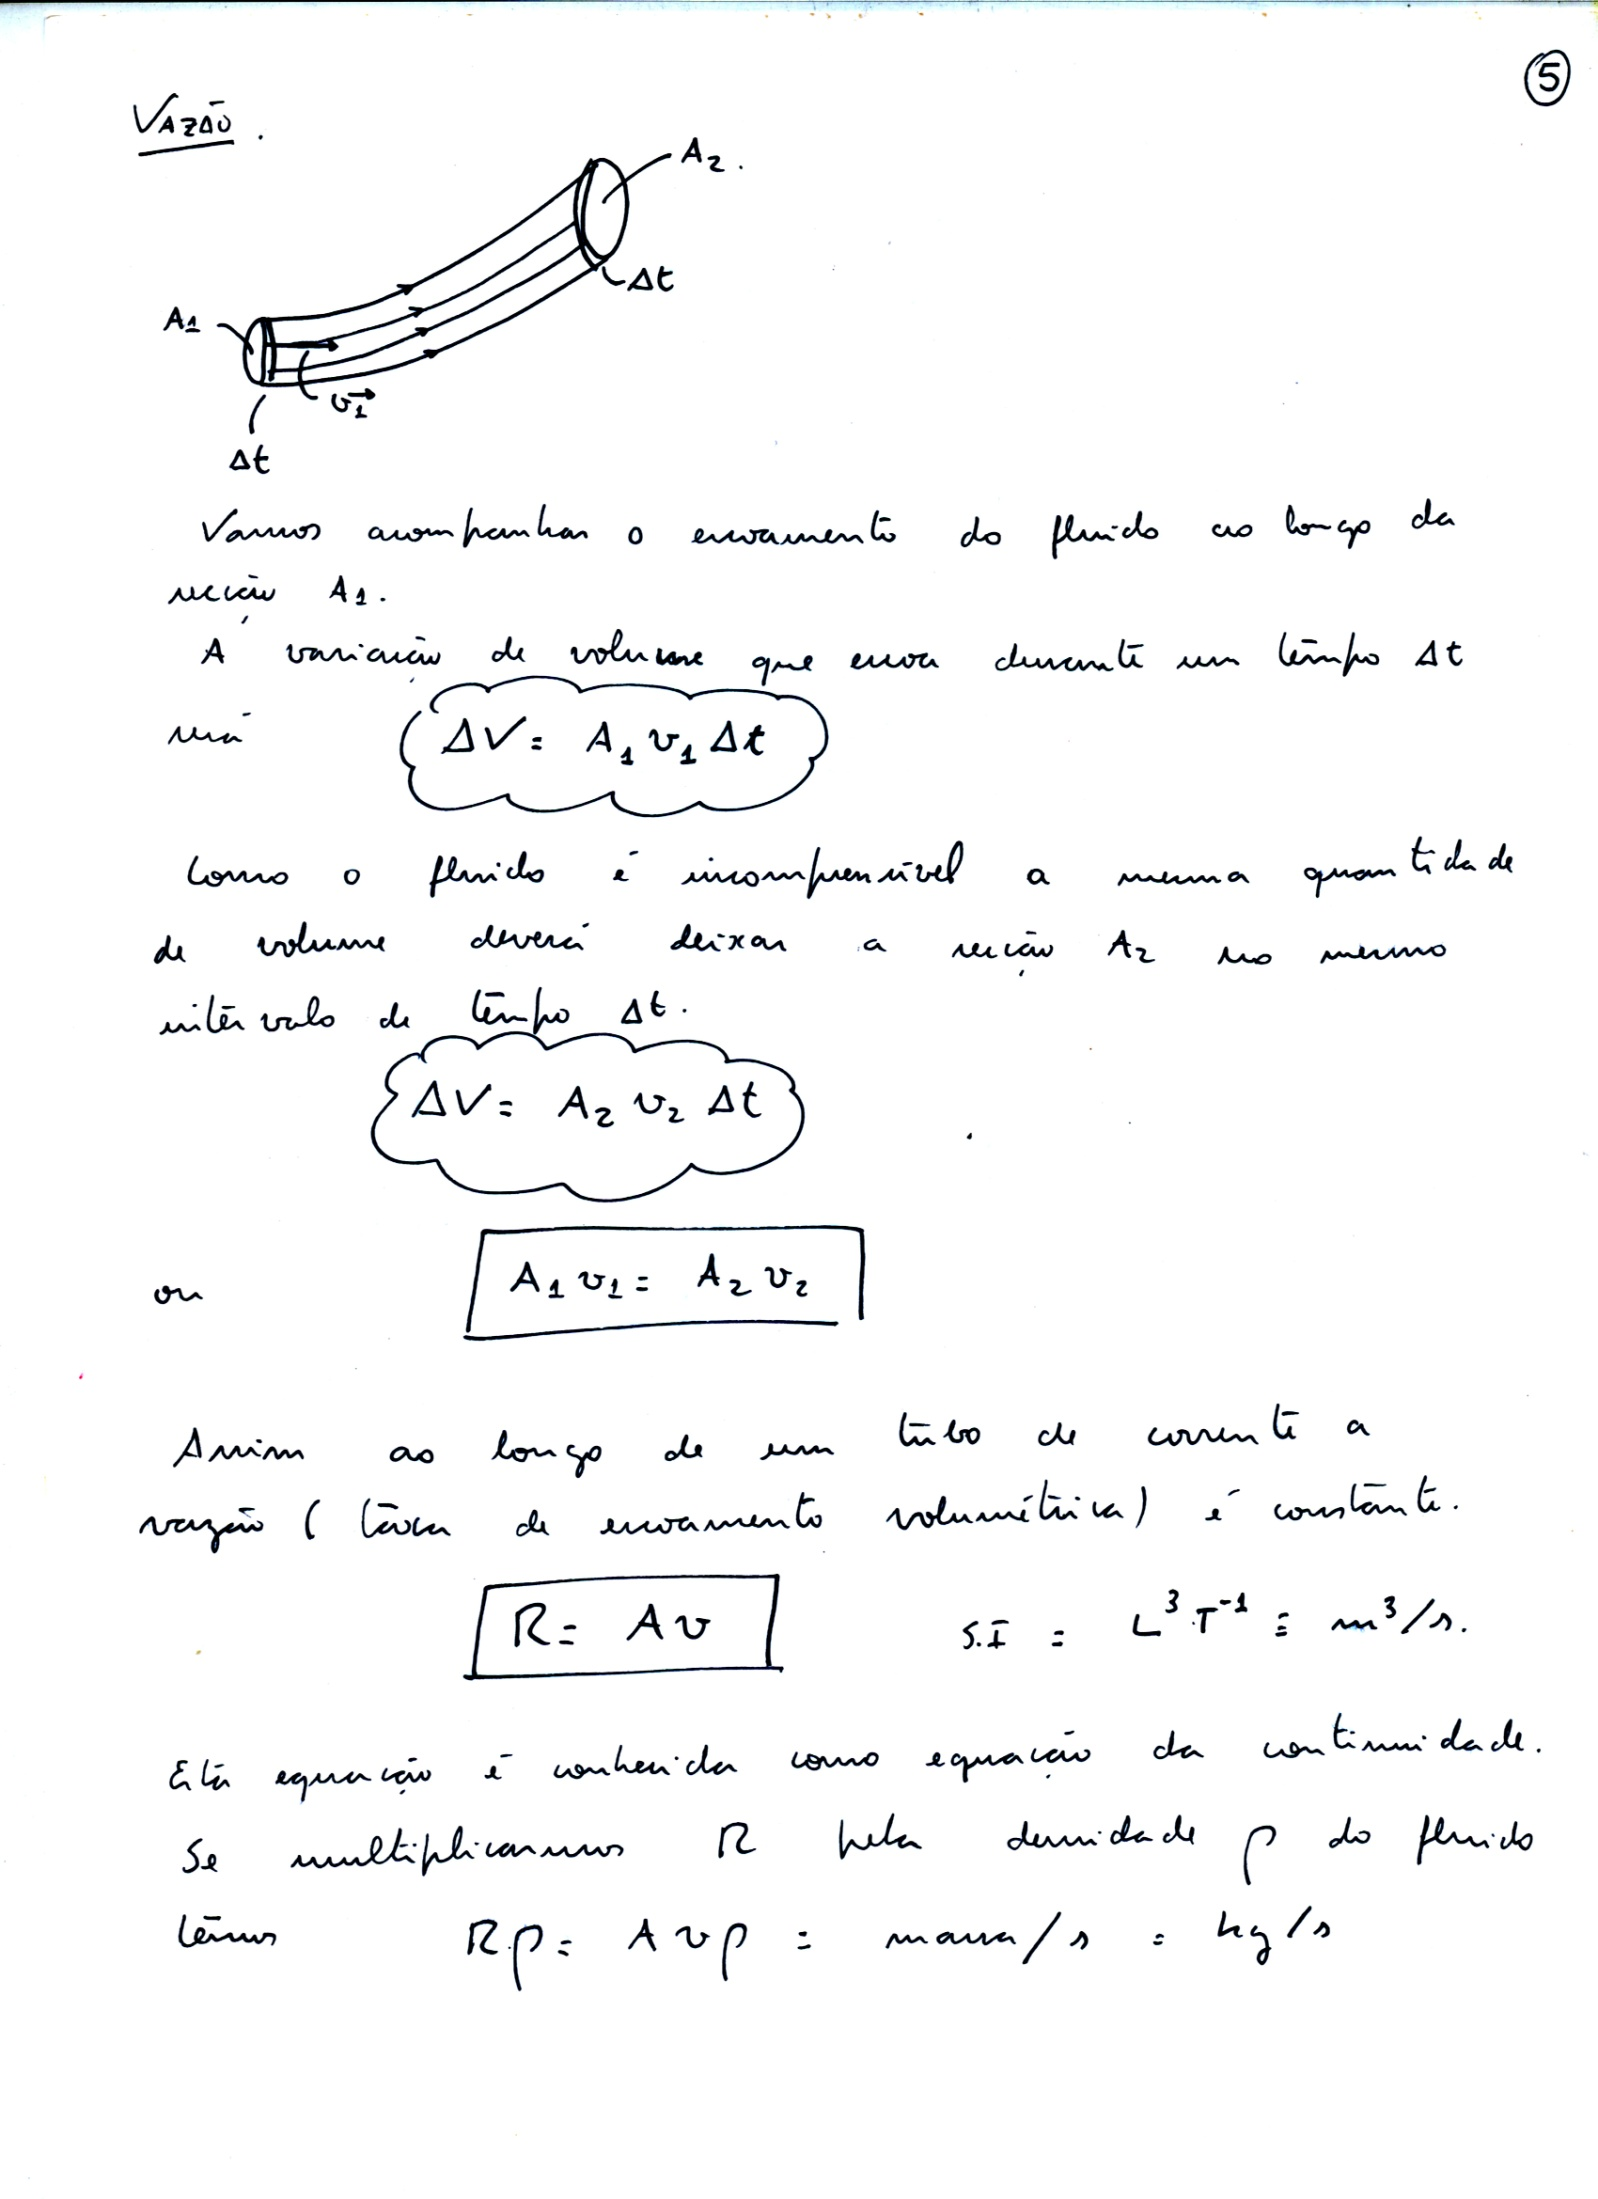 5
VAZÃO.
A2.
Δt
A1
v1
Δt
Vamos acompanhar o escoamento do fluido ao longo da
secção A1.
A variação de volume que escoa durante um tempo Δt
será ΔV = A1 v1 Δt
Como o fluido é incompressível a mesma quantidade
de volume deverá deixar a secção A2 no mesmo
intervalo de tempo Δt.
ΔV = A2 v2 Δt
ou A1 v1 = A2 v2
Assim ao longo de um tubo de corrente a
vazão (taxa de escoamento volumétrica) é constante.
R = A v S.I = L³ T⁻¹ ≡ m³/s.
Esta equação é conhecida como equação da continuidade.
Se multiplicarmos R pela densidade ρ do fluido
temos Rρ = A v ρ = massa/s = kg/s